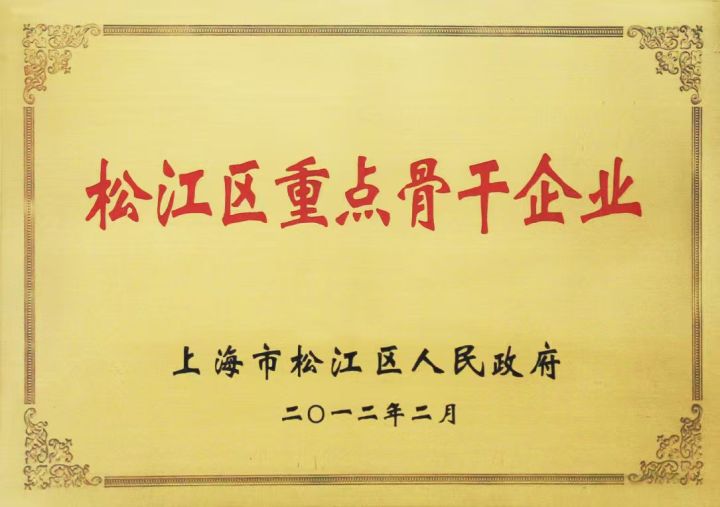 松江区重点骨干企业
上海市松江区人民政府
二〇一二年二月